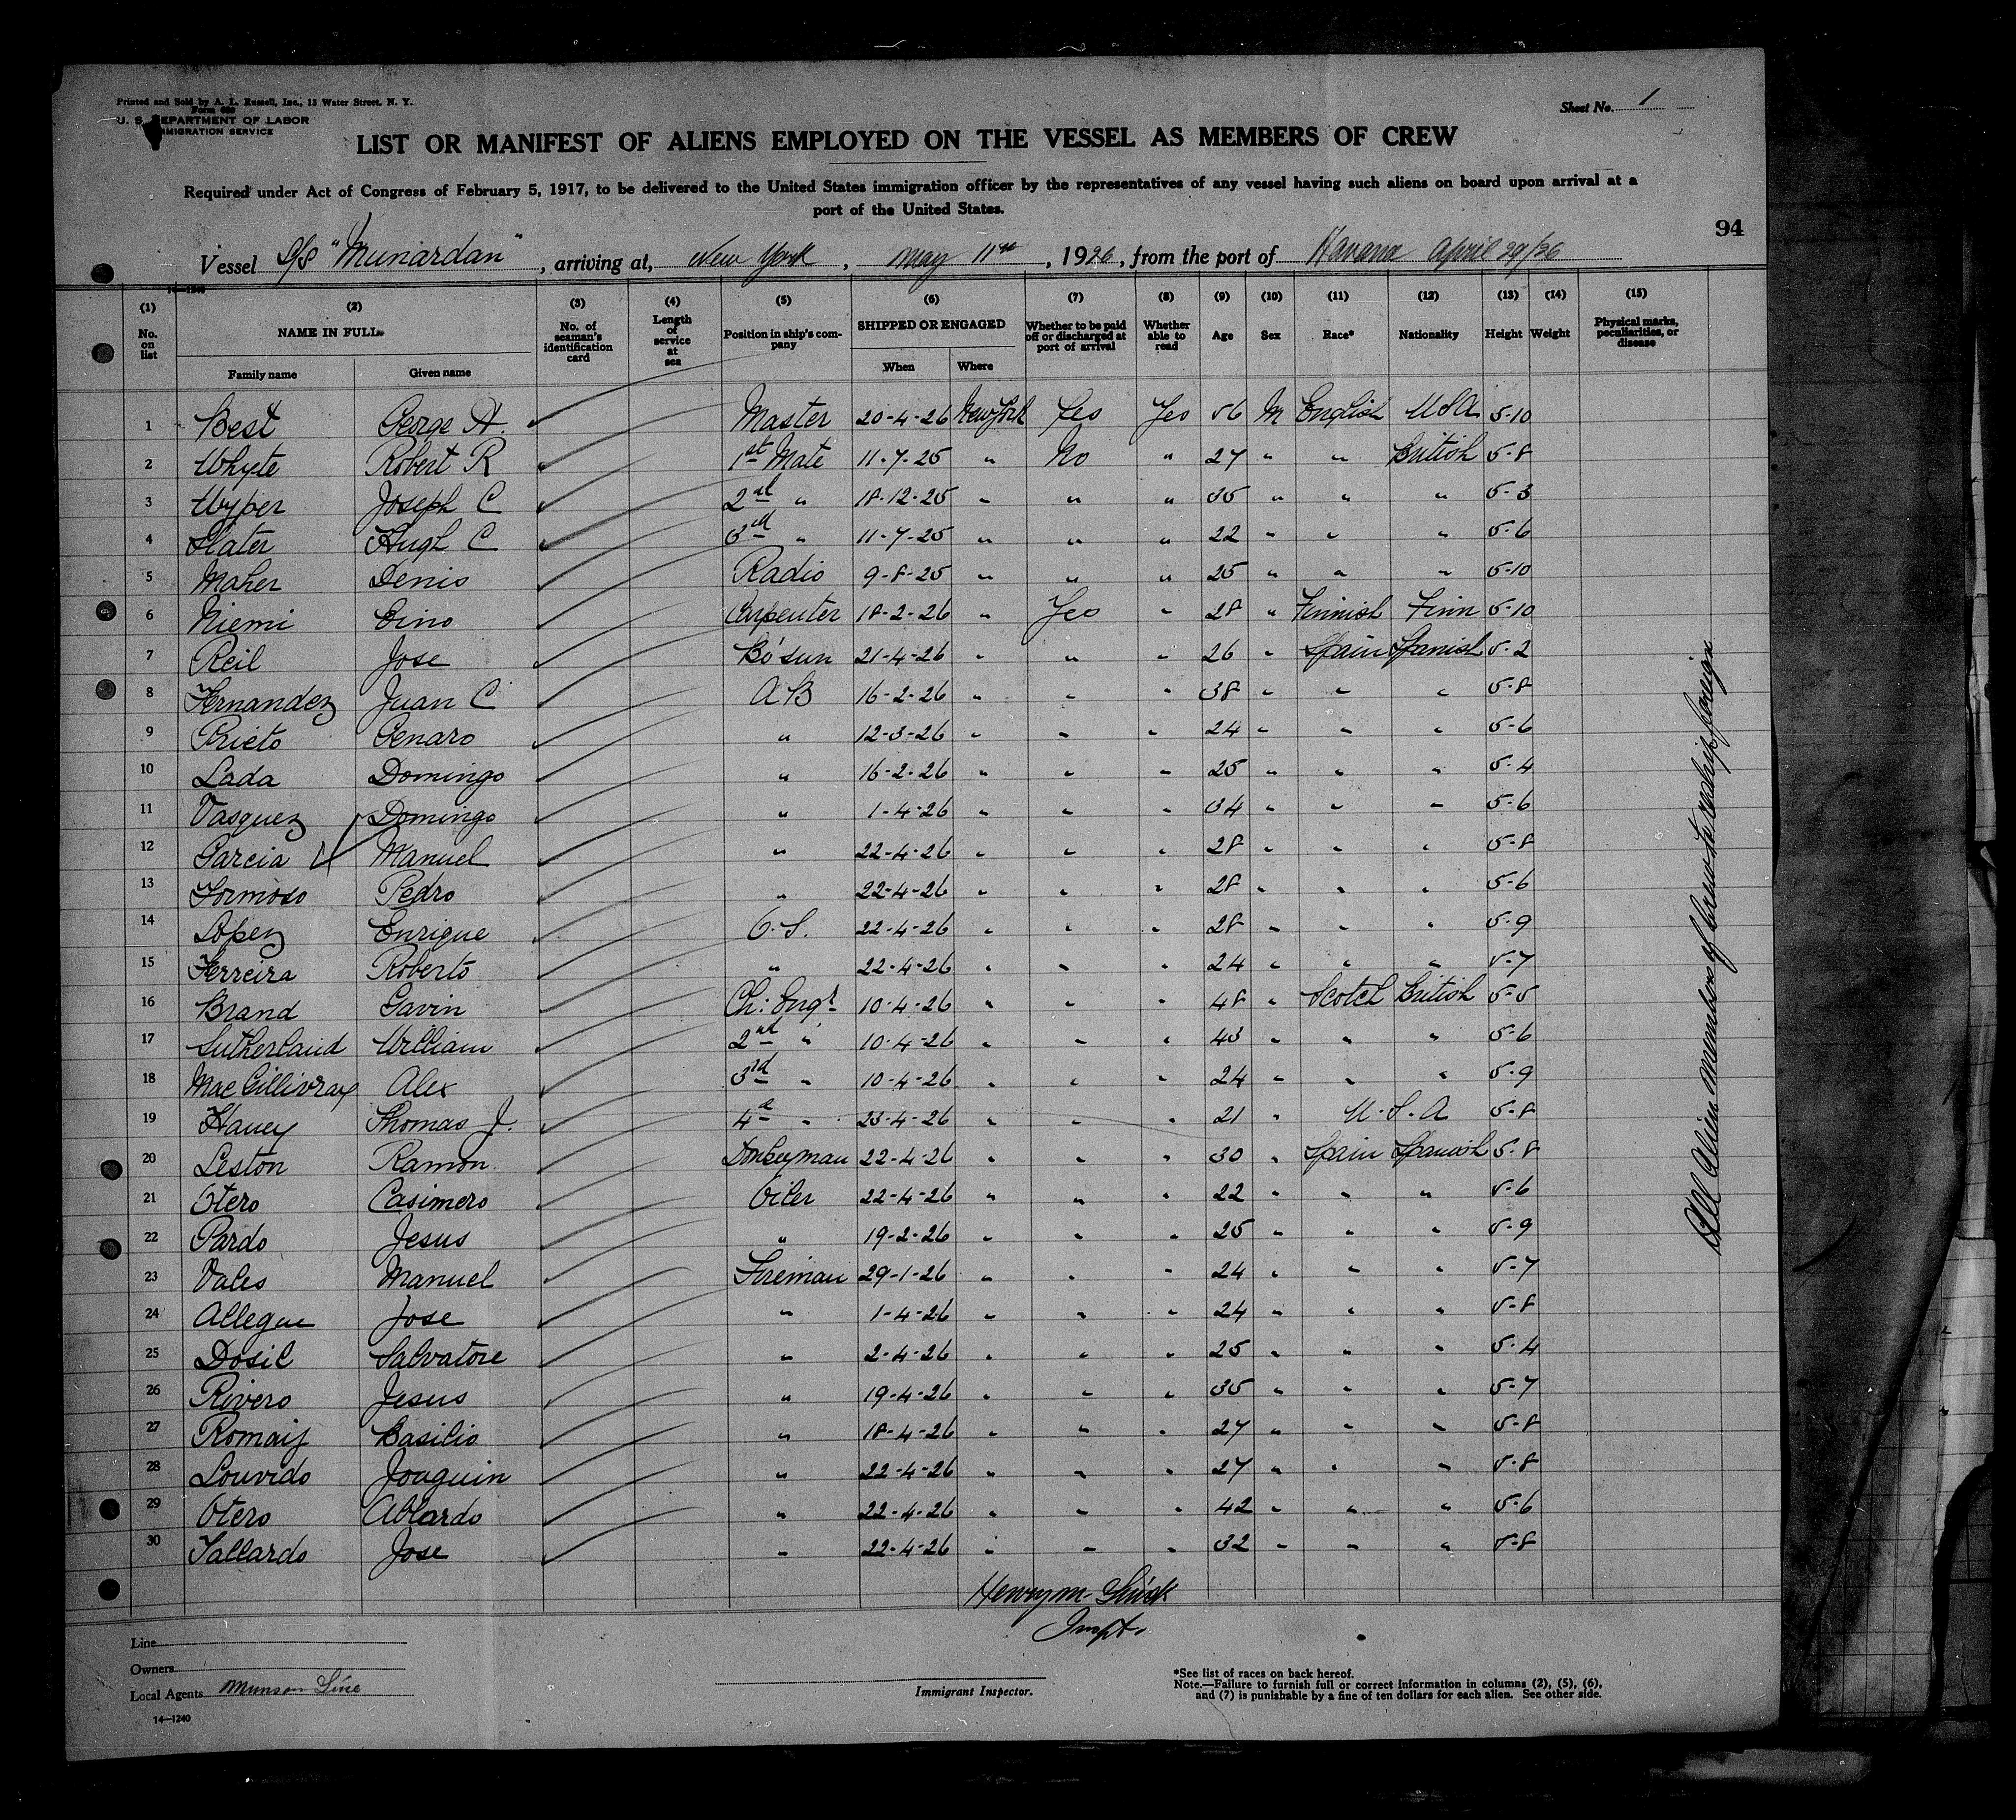 Printed and Sold by A. L. Russell, Inc., 13 Water Street, N. Y.
Form 680
U. S. DEPARTMENT OF LABOR
IMMIGRATION SERVICE
Sheet No. 1
LIST OR MANIFEST OF ALIENS EMPLOYED ON THE VESSEL AS MEMBERS OF CREW
Required under Act of Congress of February 5, 1917, to be delivered to the United States immigration officer by the representatives of any vessel having such aliens on board upon arrival at a
port of the United States.
94
Vessel S/S "Munardan", arriving at, New York, May 11th, 1926, from the port of Havana April 29/26
14—1240
(1) (2) (3) (4) (5) (6) (7) (8) (9) (10) (11) (12) (13) (14) (15)
No. on list NAME IN FULL No. of seaman's identification card Length of service at sea Position in ship's company SHIPPED OR ENGAGED Whether to be paid off or discharged at port of arrival Whether able to read Age Sex Race* Nationality Height Weight Physical marks, peculiarities, or disease
Family name Given name When Where
1 Best George A. Master 20-4-26 New York Yes Yes 56 M English USA 5-10
2 Whyte Robert R 1st Mate 11-7-25 " No " 27 " " British 5-8
3 Wyper Joseph C 2nd " 18-12-25 " " " 35 " " " 5-3
4 Slater Hugh C 3rd " 11-7-25 " " " 22 " " " 5-6
5 Maher Denis Radio 9-8-25 " " " 25 " " " 5-10
6 Niemi Eino Carpenter 18-2-26 " Yes " 28 " Finnish Finn 5-10
7 Reil Jose Bo'sun 21-4-26 " " " 26 " Spain Spanish 5-2
8 Fernandez Juan C AB 16-2-26 " " " 38 " " " 5-8
9 Prieto Genaro " 12-3-26 " " " 24 " " " 5-6
10 Lada Domingo " 16-2-26 " " " 25 " " " 5-4
11 Vasquez Domingo " 1-4-26 " " " 34 " " " 5-6
12 Garcia Manuel " 22-4-26 " " " 28 " " " 5-8
13 Formoso Pedro " 22-4-26 " " " 28 " " " 5-6
14 Lopez Enrique O.S. 22-4-26 " " " 28 " " " 5-9
15 Ferreira Roberto " 22-4-26 " " " 24 " " " 5-7
16 Brand Gavin Ch: Engr 10-4-26 " " " 48 " Scotch British 5-5
17 Sutherland William 2nd " 10-4-26 " " " 43 " " " 5-6
18 MacGillivray Alex 3rd " 10-4-26 " " " 24 " " " 5-9
19 Haney Thomas J. 4th " 23-4-26 " " " 21 " U.S.A 5-8
20 Leston Ramon Donkeyman 22-4-26 " " " 30 " Spain Spanish 5-8
21 Otero Casimero Oiler 22-4-26 " " " 22 " " " 5-6
22 Pardo Jesus " 19-2-26 " " " 25 " " " 5-9
23 Vales Manuel Fireman 29-1-26 " " " 24 " " " 5-7
24 Allegue Jose " 1-4-26 " " " 24 " " " 5-8
25 Dosil Salvatore " 2-4-26 " " " 25 " " " 5-4
26 Rivero Jesus " 19-4-26 " " " 35 " " " 5-7
27 Romaij Basilio " 18-4-26 " " " 27 " " " 5-8
28 Louvido Joaquin " 22-4-26 " " " 27 " " " 5-8
29 Otero Ablardo " 22-4-26 " " " 42 " " " 5-6
30 Tallardo Jose " 22-4-26 " " " 32 " " " 5-8
All Alien Members of Crew to reship foreign
Henry M.
Inspt.
Line
Owners
Local Agents Munson Line
14—1240
Immigrant Inspector.
*See list of races on back hereof.
Note.—Failure to furnish full or correct information in columns (2), (5), (6),
and (7) is punishable by a fine of ten dollars for each alien. See other side.